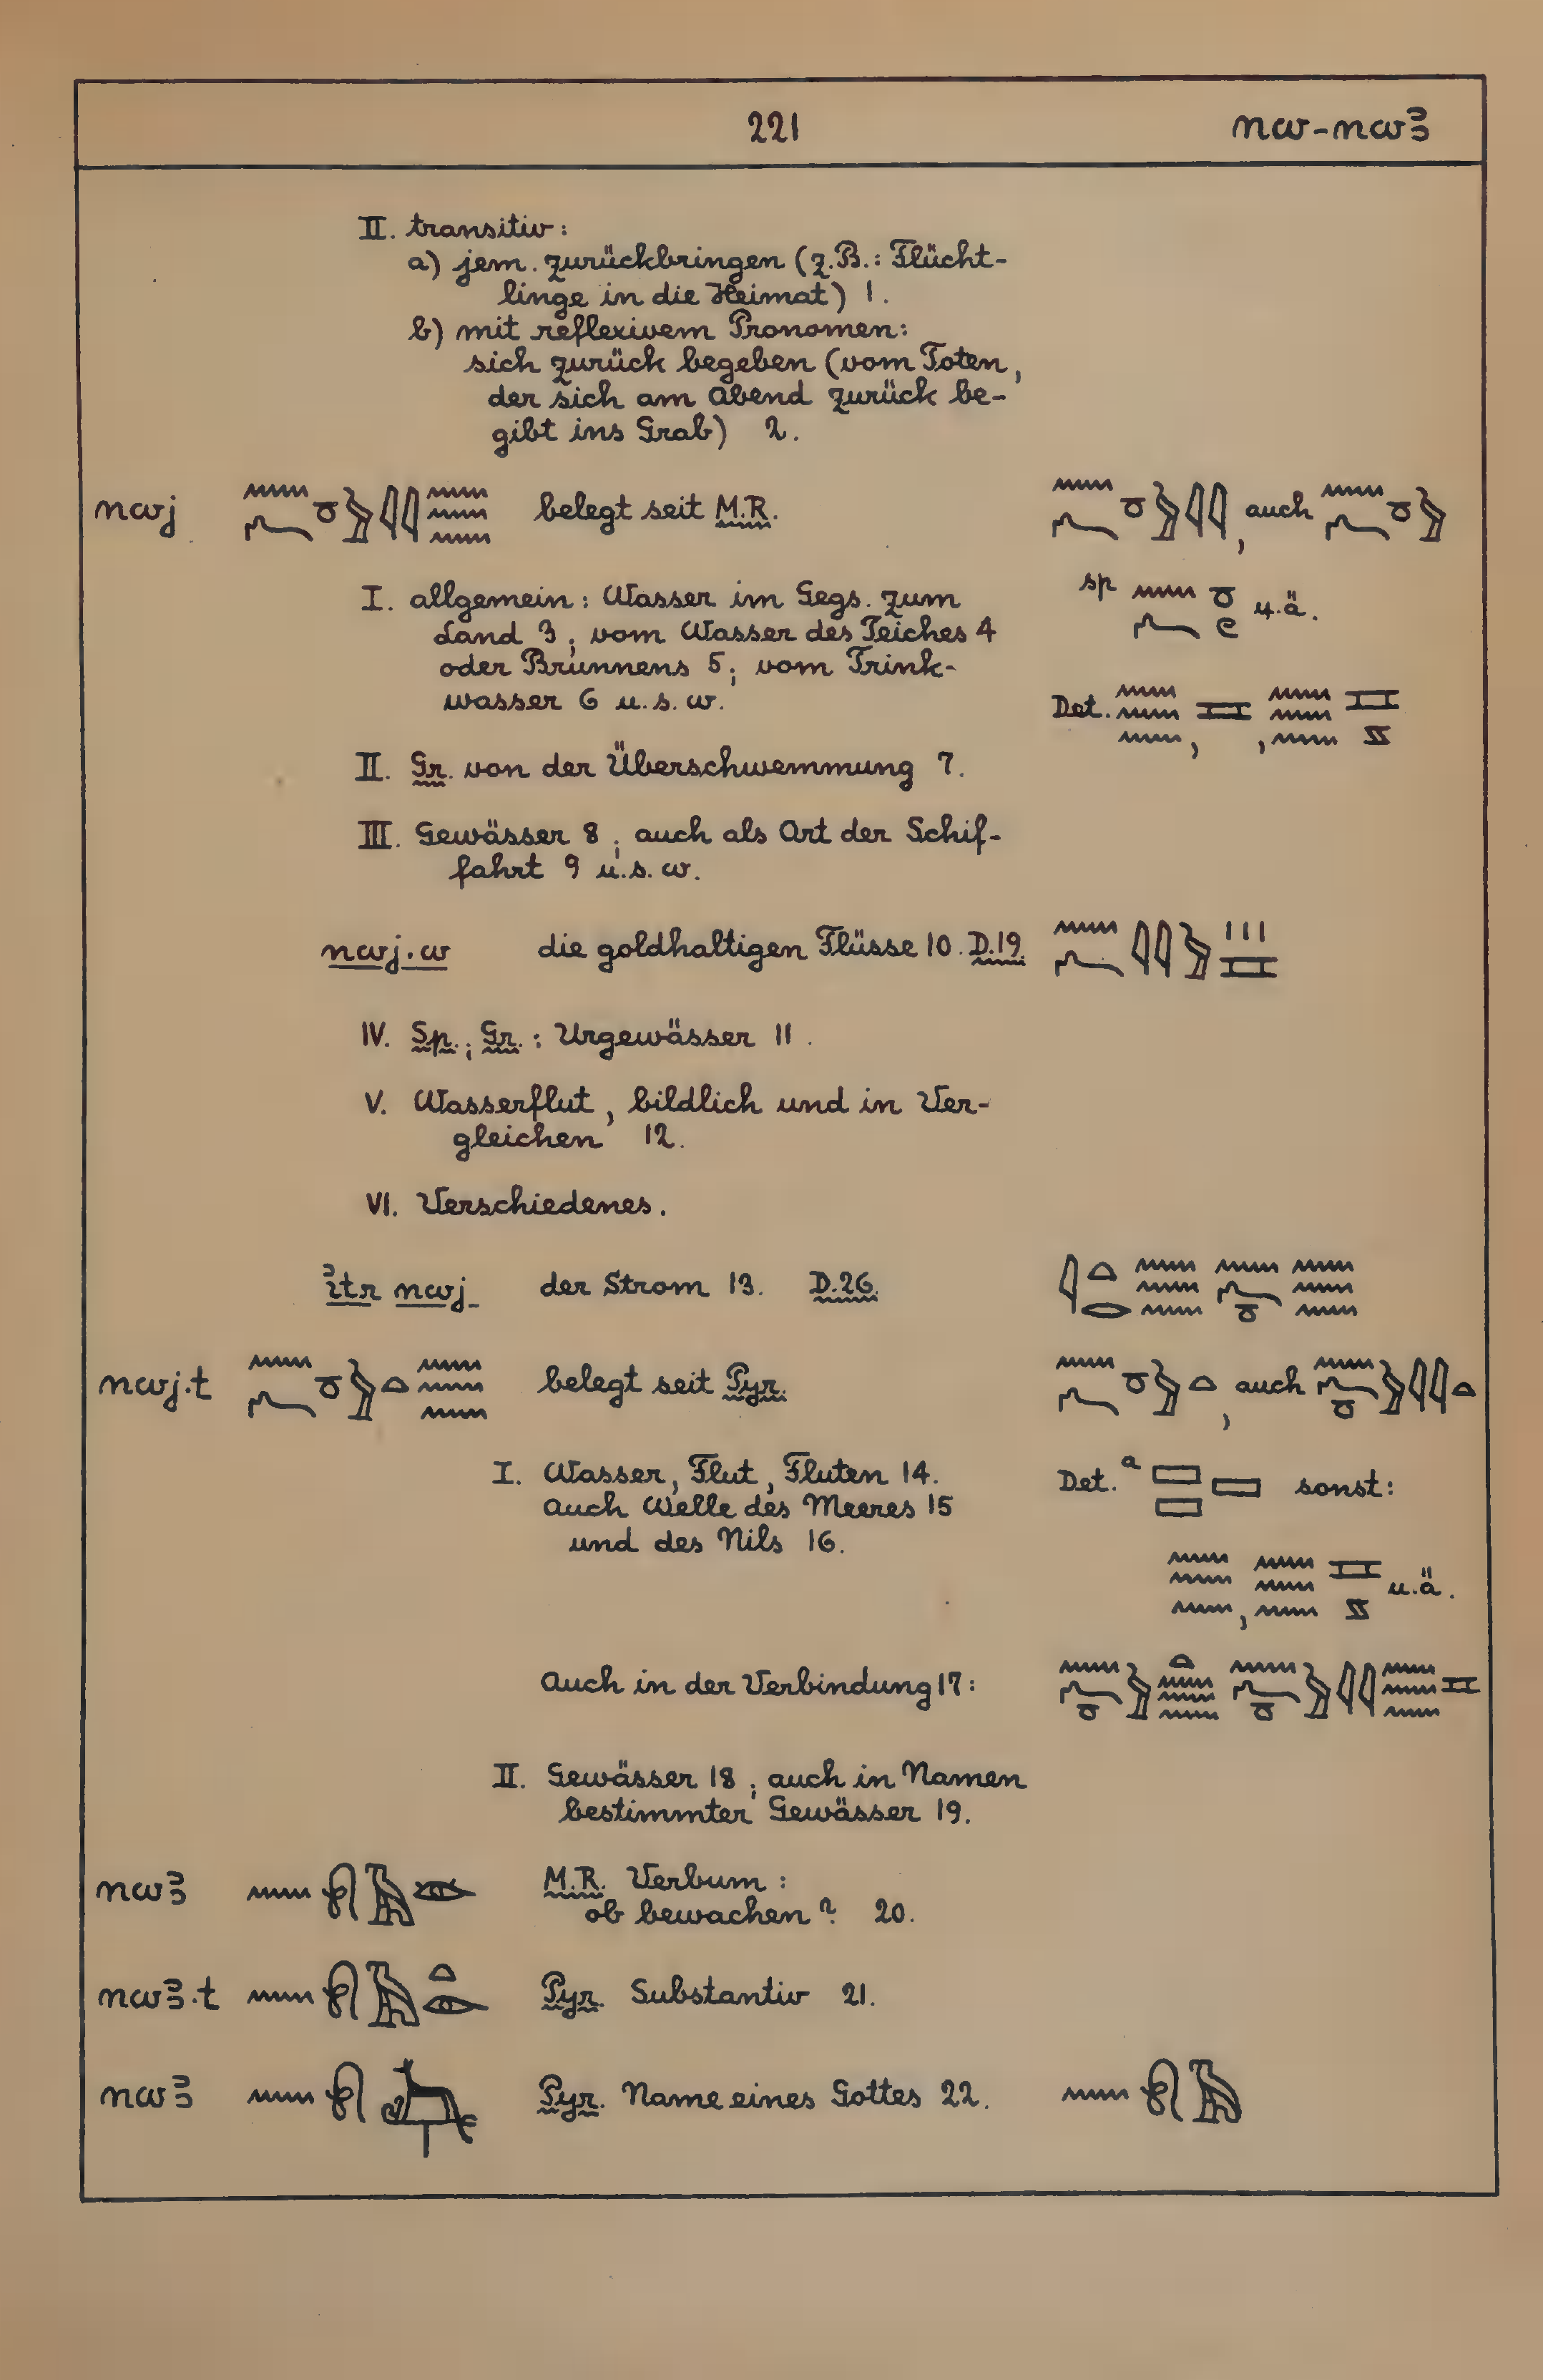 221 nw-nwꜣ
II. transitiv:
a) jem. zurückbringen (z.B.: Flücht-
linge in die Heimat) 1.
b) mit reflexivem Pronomen:
sich zurück begeben (vom Toten,
der sich am Abend zurück be-
gibt ins Grab) 2.
nwj belegt seit M.R. , auch
I. allgemein: Wasser im Gegs. zum
Land 3; vom Wasser des Teiches 4
oder Brunnens 5; vom Trink-
wasser 6 u.s.w.
sp u.ä.
Det. , ,
II. Gr. von der Überschwemmung 7.
III. Gewässer 8; auch als Art der Schif-
fahrt 9 u.s.w.
nwj.w die goldhaltigen Flüsse 10. D.19.
IV. Sp.; Gr.: Urgewässer 11.
V. Wasserflut, bildlich und in Ver-
gleichen 12.
VI. Verschiedenes.
ꞽtr nwj der Strom 13. D.26.
nwj.t belegt seit Pyr. , auch
I. Wasser, Flut, Fluten 14.
auch Welle des Meeres 15
und des Nils 16.
Det. a sonst:
, u.ä.
Auch in der Verbindung 17:
II. Gewässer 18; auch in Namen
bestimmter Gewässer 19.
nwꜣ M.R. Verbum:
ob bewachen? 20.
nwꜣ.t Pyr. Substantiv 21.
nwꜣ Pyr. Name eines Gottes 22.